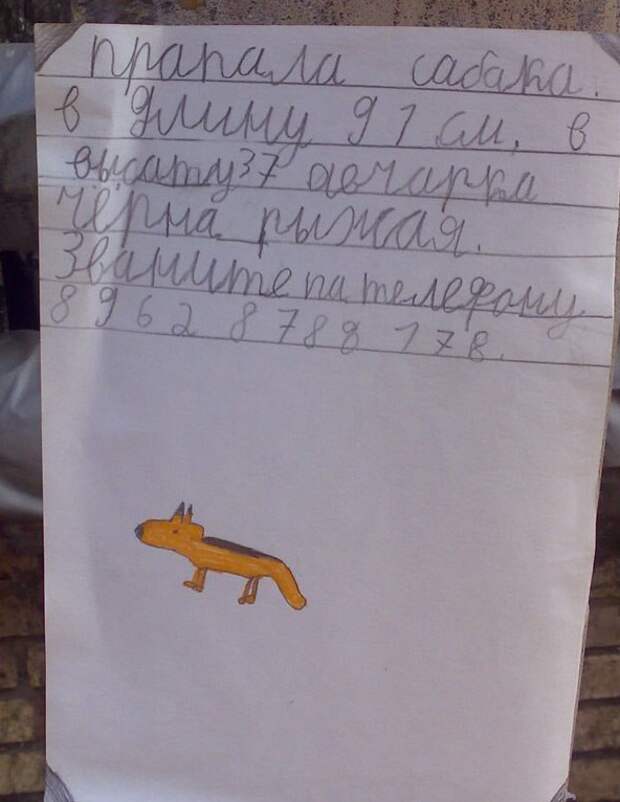 прапала сабака.
в длину 91 см. в
высату 37 авчарка
чёрна рыжая.
Званите па телефону
8 962 8788 178.